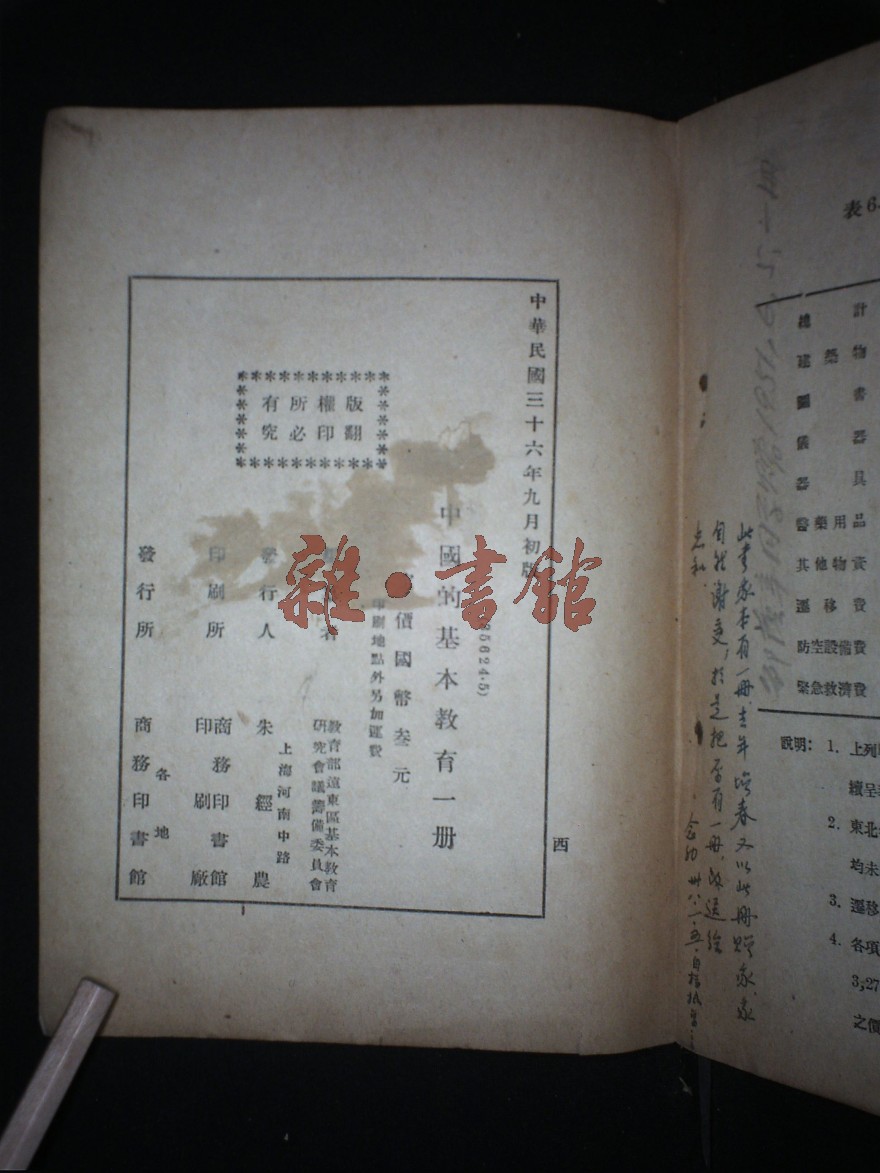 中華民國三十六年九月初版
(35624·5)
中國的基本教育一冊
價國幣叁元
印刷地點外另加運費
版權所有
翻印必究
者
教育部遠東區基本教育
研究會議籌備委員會
發行人
朱經農
上海河南中路
印刷所
商務印書館
印刷廠
發行所
各地
商務印書館
西
雜·書館
表6.
總計
建築物
圖書
儀器
器具
醫藥用品
其他物資
遷移費
防空設備費
緊急救濟費
說明: 1. 上列
續呈
2. 東北
均未
3. 遷移
4. 各項
3,27
之價
此書家本有一冊,去年增春又以此冊贈家,家
自然謝受,於是把舊有一冊,改送給